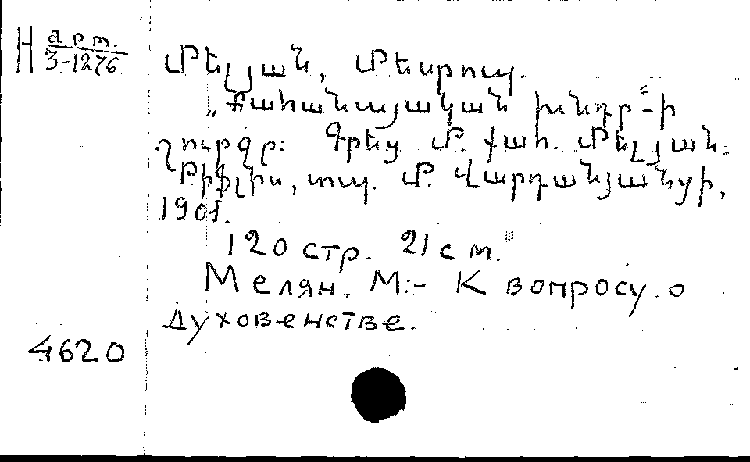 Н арт.
3-1276
Մելյան, Մեսրոպ.
„Քահանայական խնդր"-ի
շուրջը: Գրեց Մ. քահ. Մելյան:
Թիֆլիս, տպ. Մ. Վարդանյանցի,
1901.
120 стр. 21 см.
Мелян. М:- К вопросу о
духовенстве.
4620